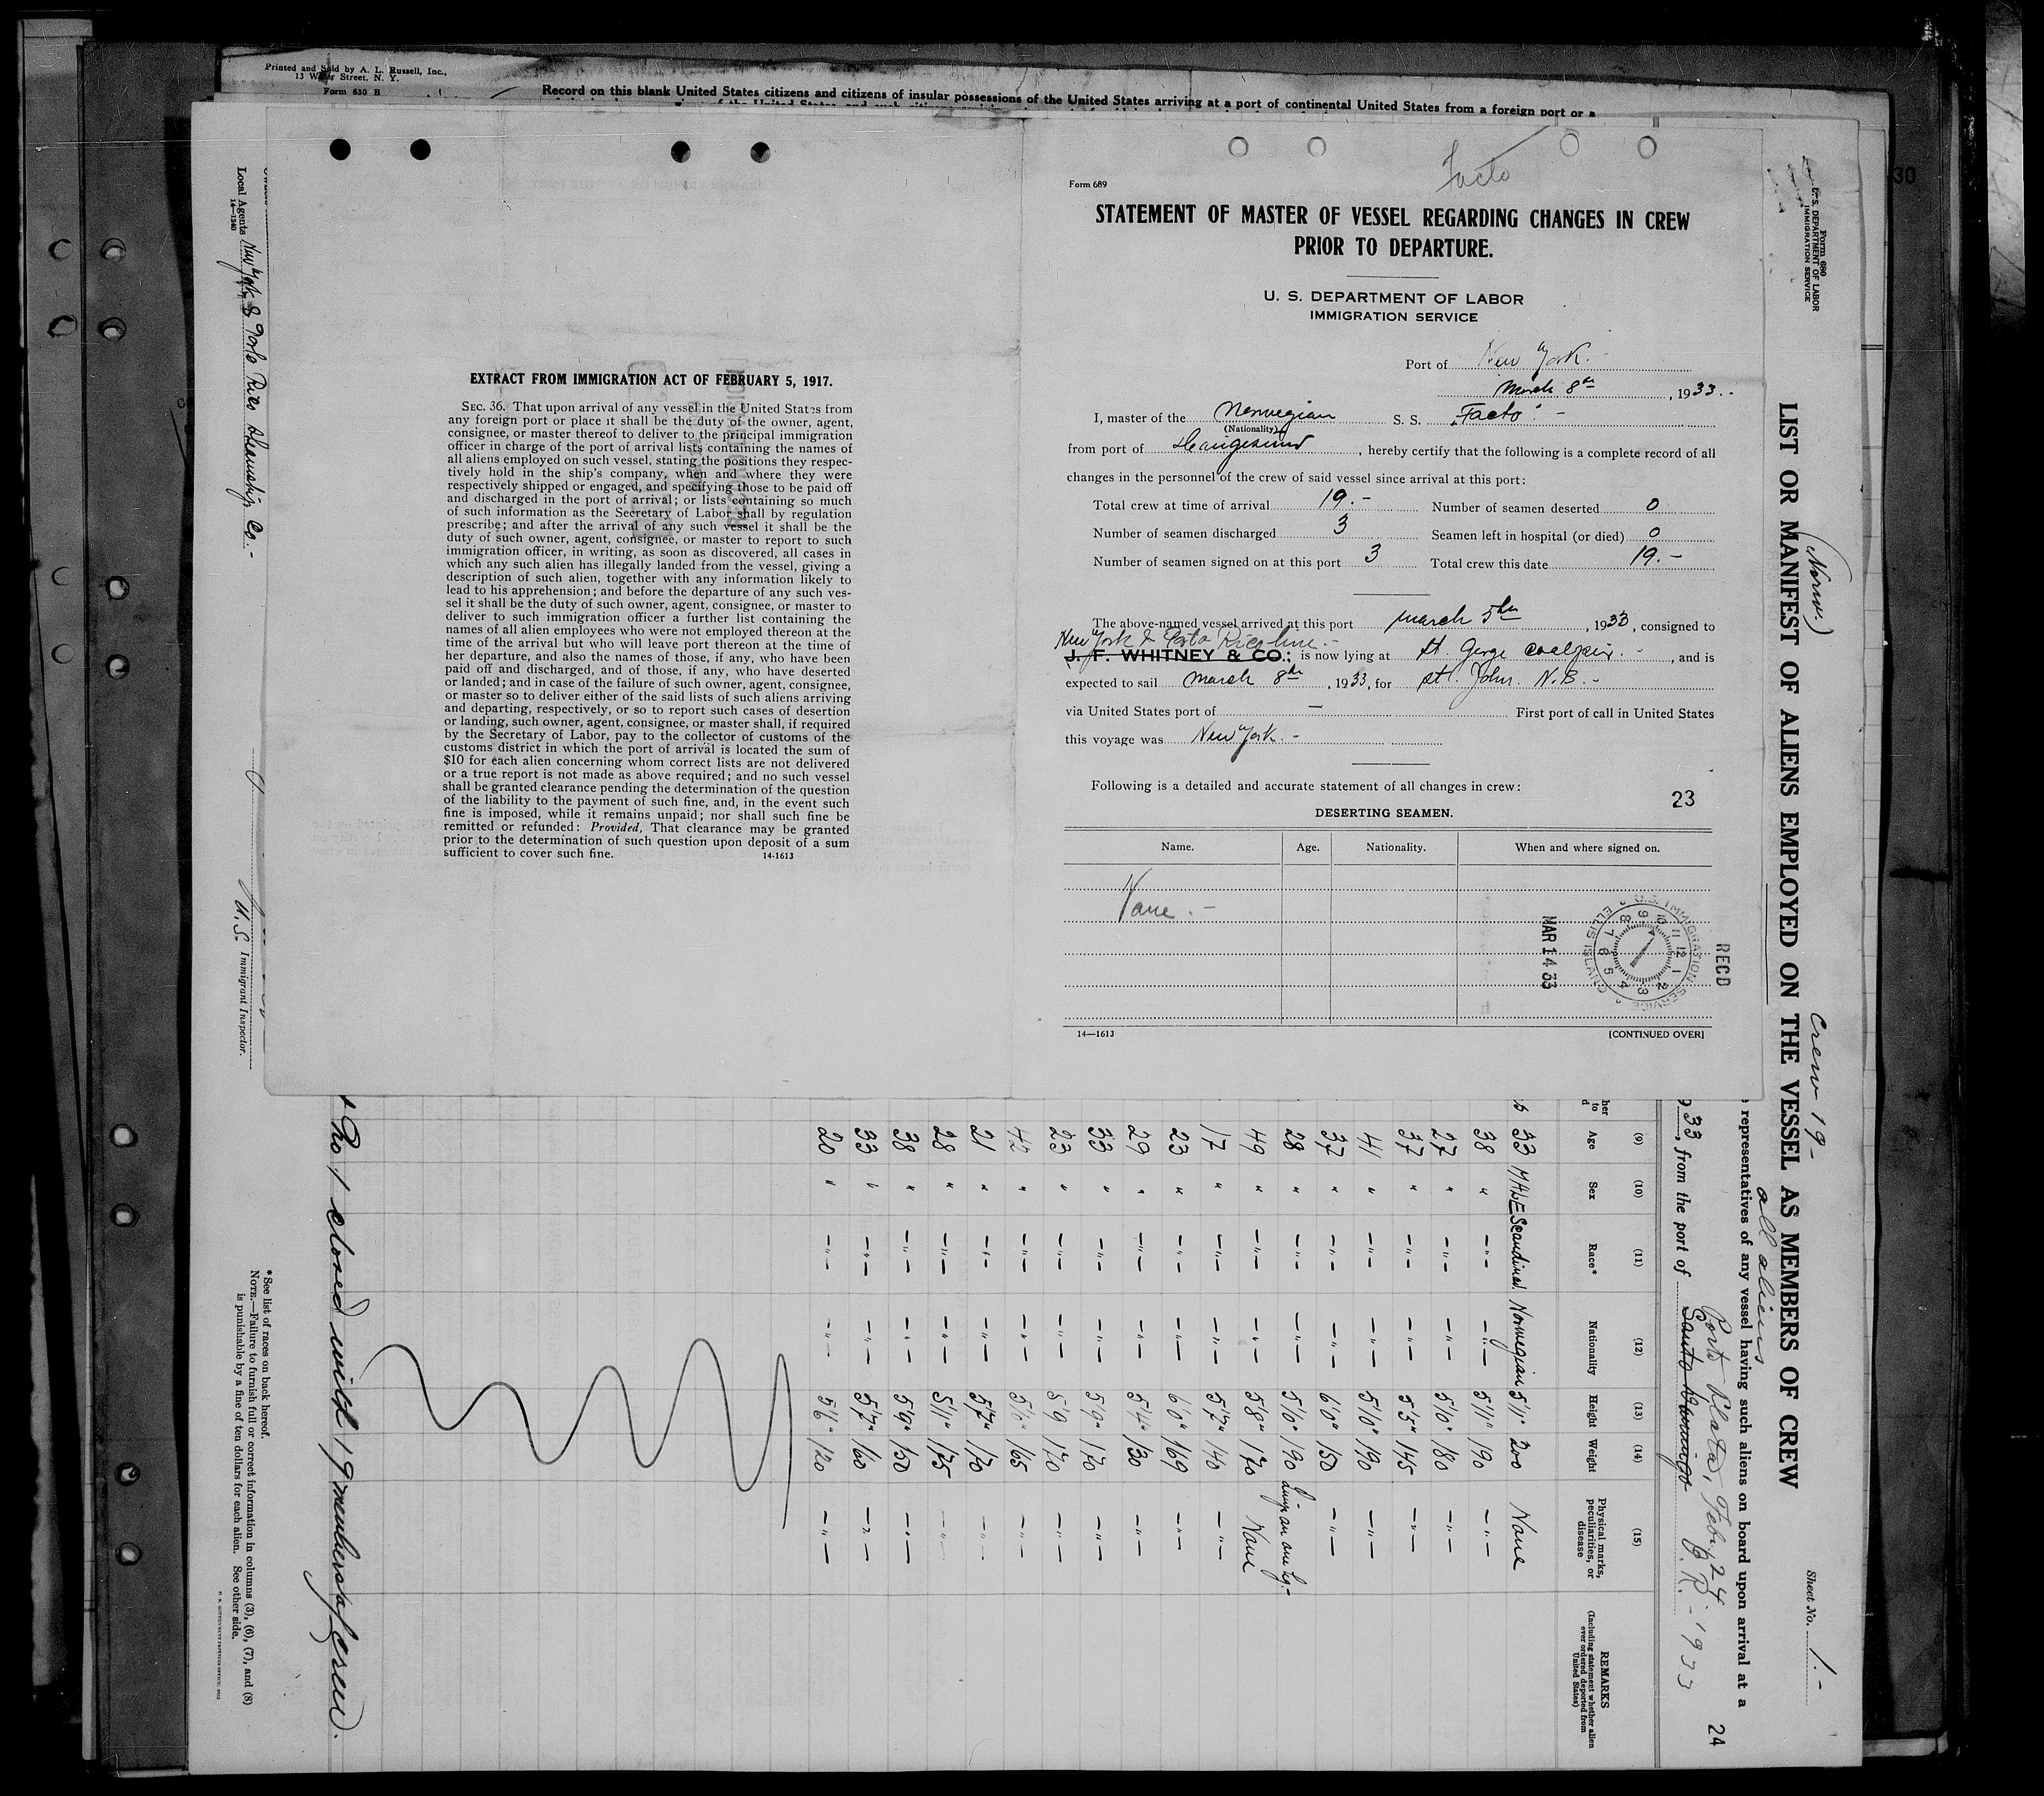 Printed and Sold by A. L. Russell, Inc.,
13 Water Street, N. Y.
Form 630 B
Record on this blank United States citizens and citizens of insular possessions of the United States arriving at a port of continental United States from a foreign port or a
Local Agents New York & Porto Rico Steamship Co.-
14—1240
U.S. Immigrant Inspector.
EXTRACT FROM IMMIGRATION ACT OF FEBRUARY 5, 1917.
SEC. 36. That upon arrival of any vessel in the United States from
any foreign port or place it shall be the duty of the owner, agent,
consignee, or master thereof to deliver to the principal immigration
officer in charge of the port of arrival lists containing the names of
all aliens employed on such vessel, stating the positions they respec-
tively hold in the ship's company, when and where they were
respectively shipped or engaged, and specifying those to be paid off
and discharged in the port of arrival; or lists containing so much
of such information as the Secretary of Labor shall by regulation
prescribe; and after the arrival of any such vessel it shall be the
duty of such owner, agent, consignee, or master to report to such
immigration officer, in writing, as soon as discovered, all cases in
which any such alien has illegally landed from the vessel, giving a
description of such alien, together with any information likely to
lead to his apprehension; and before the departure of any such ves-
sel it shall be the duty of such owner, agent, consignee, or master to
deliver to such immigration officer a further list containing the
names of all alien employees who were not employed thereon at the
time of the arrival but who will leave port thereon at the time of
her departure, and also the names of those, if any, who have been
paid off and discharged, and of those, if any, who have deserted
or landed; and in case of the failure of such owner, agent, consignee,
or master so to deliver either of the said lists of such aliens arriving
and departing, respectively, or so to report such cases of desertion
or landing, such owner, agent, consignee, or master shall, if required
by the Secretary of Labor, pay to the collector of customs of the
customs district in which the port of arrival is located the sum of
$10 for each alien concerning whom correct lists are not delivered
or a true report is not made as above required; and no such vessel
shall be granted clearance pending the determination of the question
of the liability to the payment of such fine, and, in the event such
fine is imposed, while it remains unpaid; nor shall such fine be
remitted or refunded: Provided, That clearance may be granted
prior to the determination of such question upon deposit of a sum
sufficient to cover such fine. 14-1613
Facto
Form 689
STATEMENT OF MASTER OF VESSEL REGARDING CHANGES IN CREW
PRIOR TO DEPARTURE.
U. S. DEPARTMENT OF LABOR
IMMIGRATION SERVICE
Port of New York.
March 8th, 1933.-
I, master of the Norwegian S. S. "Facto" -
(Nationality)
from port of Haugesund, hereby certify that the following is a complete record of all
changes in the personnel of the crew of said vessel since arrival at this port:
Total crew at time of arrival 19.- Number of seamen deserted 0
Number of seamen discharged 3 Seamen left in hospital (or died) 0
Number of seamen signed on at this port 3 Total crew this date 19.-
The above-named vessel arrived at this port March 5th, 1933, consigned to
New York & Porto Rico line.-
J. F. WHITNEY & CO.; is now lying at St. Gerge Coalpier. -, and is
expected to sail March 8th, 1933, for St. John. N.B.-
via United States port of — First port of call in United States
this voyage was New York.-
Following is a detailed and accurate statement of all changes in crew:
23
DESERTING SEAMEN.
Name. Age. Nationality. When and where signed on.
None.-
MAR 14 33
U.S. IMMIGRATION SERVICE ELLIS ISLAND
RECD
14—1613 [CONTINUED OVER]
Form 680
U. S. DEPARTMENT OF LABOR
IMMIGRATION SERVICE
(Norw.) Crew 19- Sheet No. 1.-
LIST OR MANIFEST OF ALIENS EMPLOYED ON THE VESSEL AS MEMBERS OF CREW
all aliens
representatives of any vessel having such aliens on board upon arrival at a
Porto Plata, Feb., 24
33, from the port of Santo Domingo - 1933
24
(9) (10) (11) (12) (13) (14) (15)
Age Sex Race* Nationality Height Weight Physical marks, peculiarities, or disease REMARKS (Including statement whether alien ever ordered deported from United States)
33 MALE Scandinav. Norwegian 5'11" 200 None
38 " -"- -"- 5'11" 190 -"-
27 " -"- -"- 5'10" 180 -"-
37 " -"- -"- 5'5" 145 -"-
41 " -"- -"- 5'10" 190 -"-
37 " -"- -"- 6'0" 150 -"-
28 " -"- -"- 5'10" 190
49 " -"- -"- 5'8" 170 None
17 " -"- -"- 5'7" 140 -"-
23 " -"- -"- 6'0" 169 -"-
29 " -"- -"- 5'4" 130 -"-
33 " -"- -"- 5'9" 170 -"-
23 " -"- -"- 5'9 170 -"-
42 " -"- -"- 5'6" 165 -"-
21 " -"- -"- 5'7" 170 -"-
28 " -"- -"- 5'11" 175 -"-
38 " -"- -"- 5'9" 150 -"-
33 " -"- -"- 5'7" 160 -"-
20 " -"- -"- 5'6" 120 -"-
No 1 closed with 19 members of crew.
* See list of races on back hereof.
NOTE.—Failure to furnish full or correct information in columns (3), (6), (7), and (8)
is punishable by a fine of ten dollars for each alien. See other side.